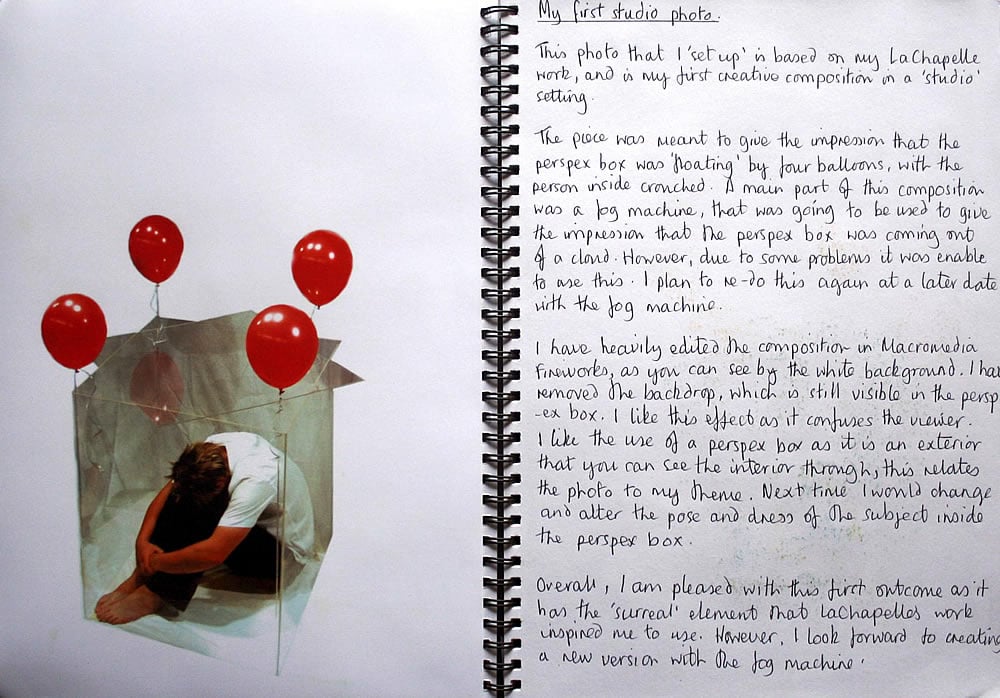 My first studio photo.
This photo that I 'set up' is based on my LaChapelle
work, and is my first creative composition in a 'studio'
setting.
The piece was meant to give the impression that the
perspex box was 'floating' by four balloons, with the
person inside crouched. A main part of this composition
was a fog machine, that was going to be used to give
the impression that the perspex box was coming out
of a cloud. However, due to some problems it was enable
to use this. I plan to re-do this again at a later date
with the fog machine.
I have heavily edited the composition in Macromedia
Fireworks, as you can see by the white background. I hav
removed the backdrop, which is still visible in the persp
-ex box. I like this effect as it confuses the viewer.
I like the use of a perspex box as it is an exterior
that you can see the interior through, this relates
the photo to my theme. Next time I would change
and alter the pose and dress of the subject inside
the perspex box.
Overall, I am pleased with this first outcome as it
has the 'surreal' element that LaChapelles work
inspired me to use. However, I look forward to creating
a new version with the fog machine.